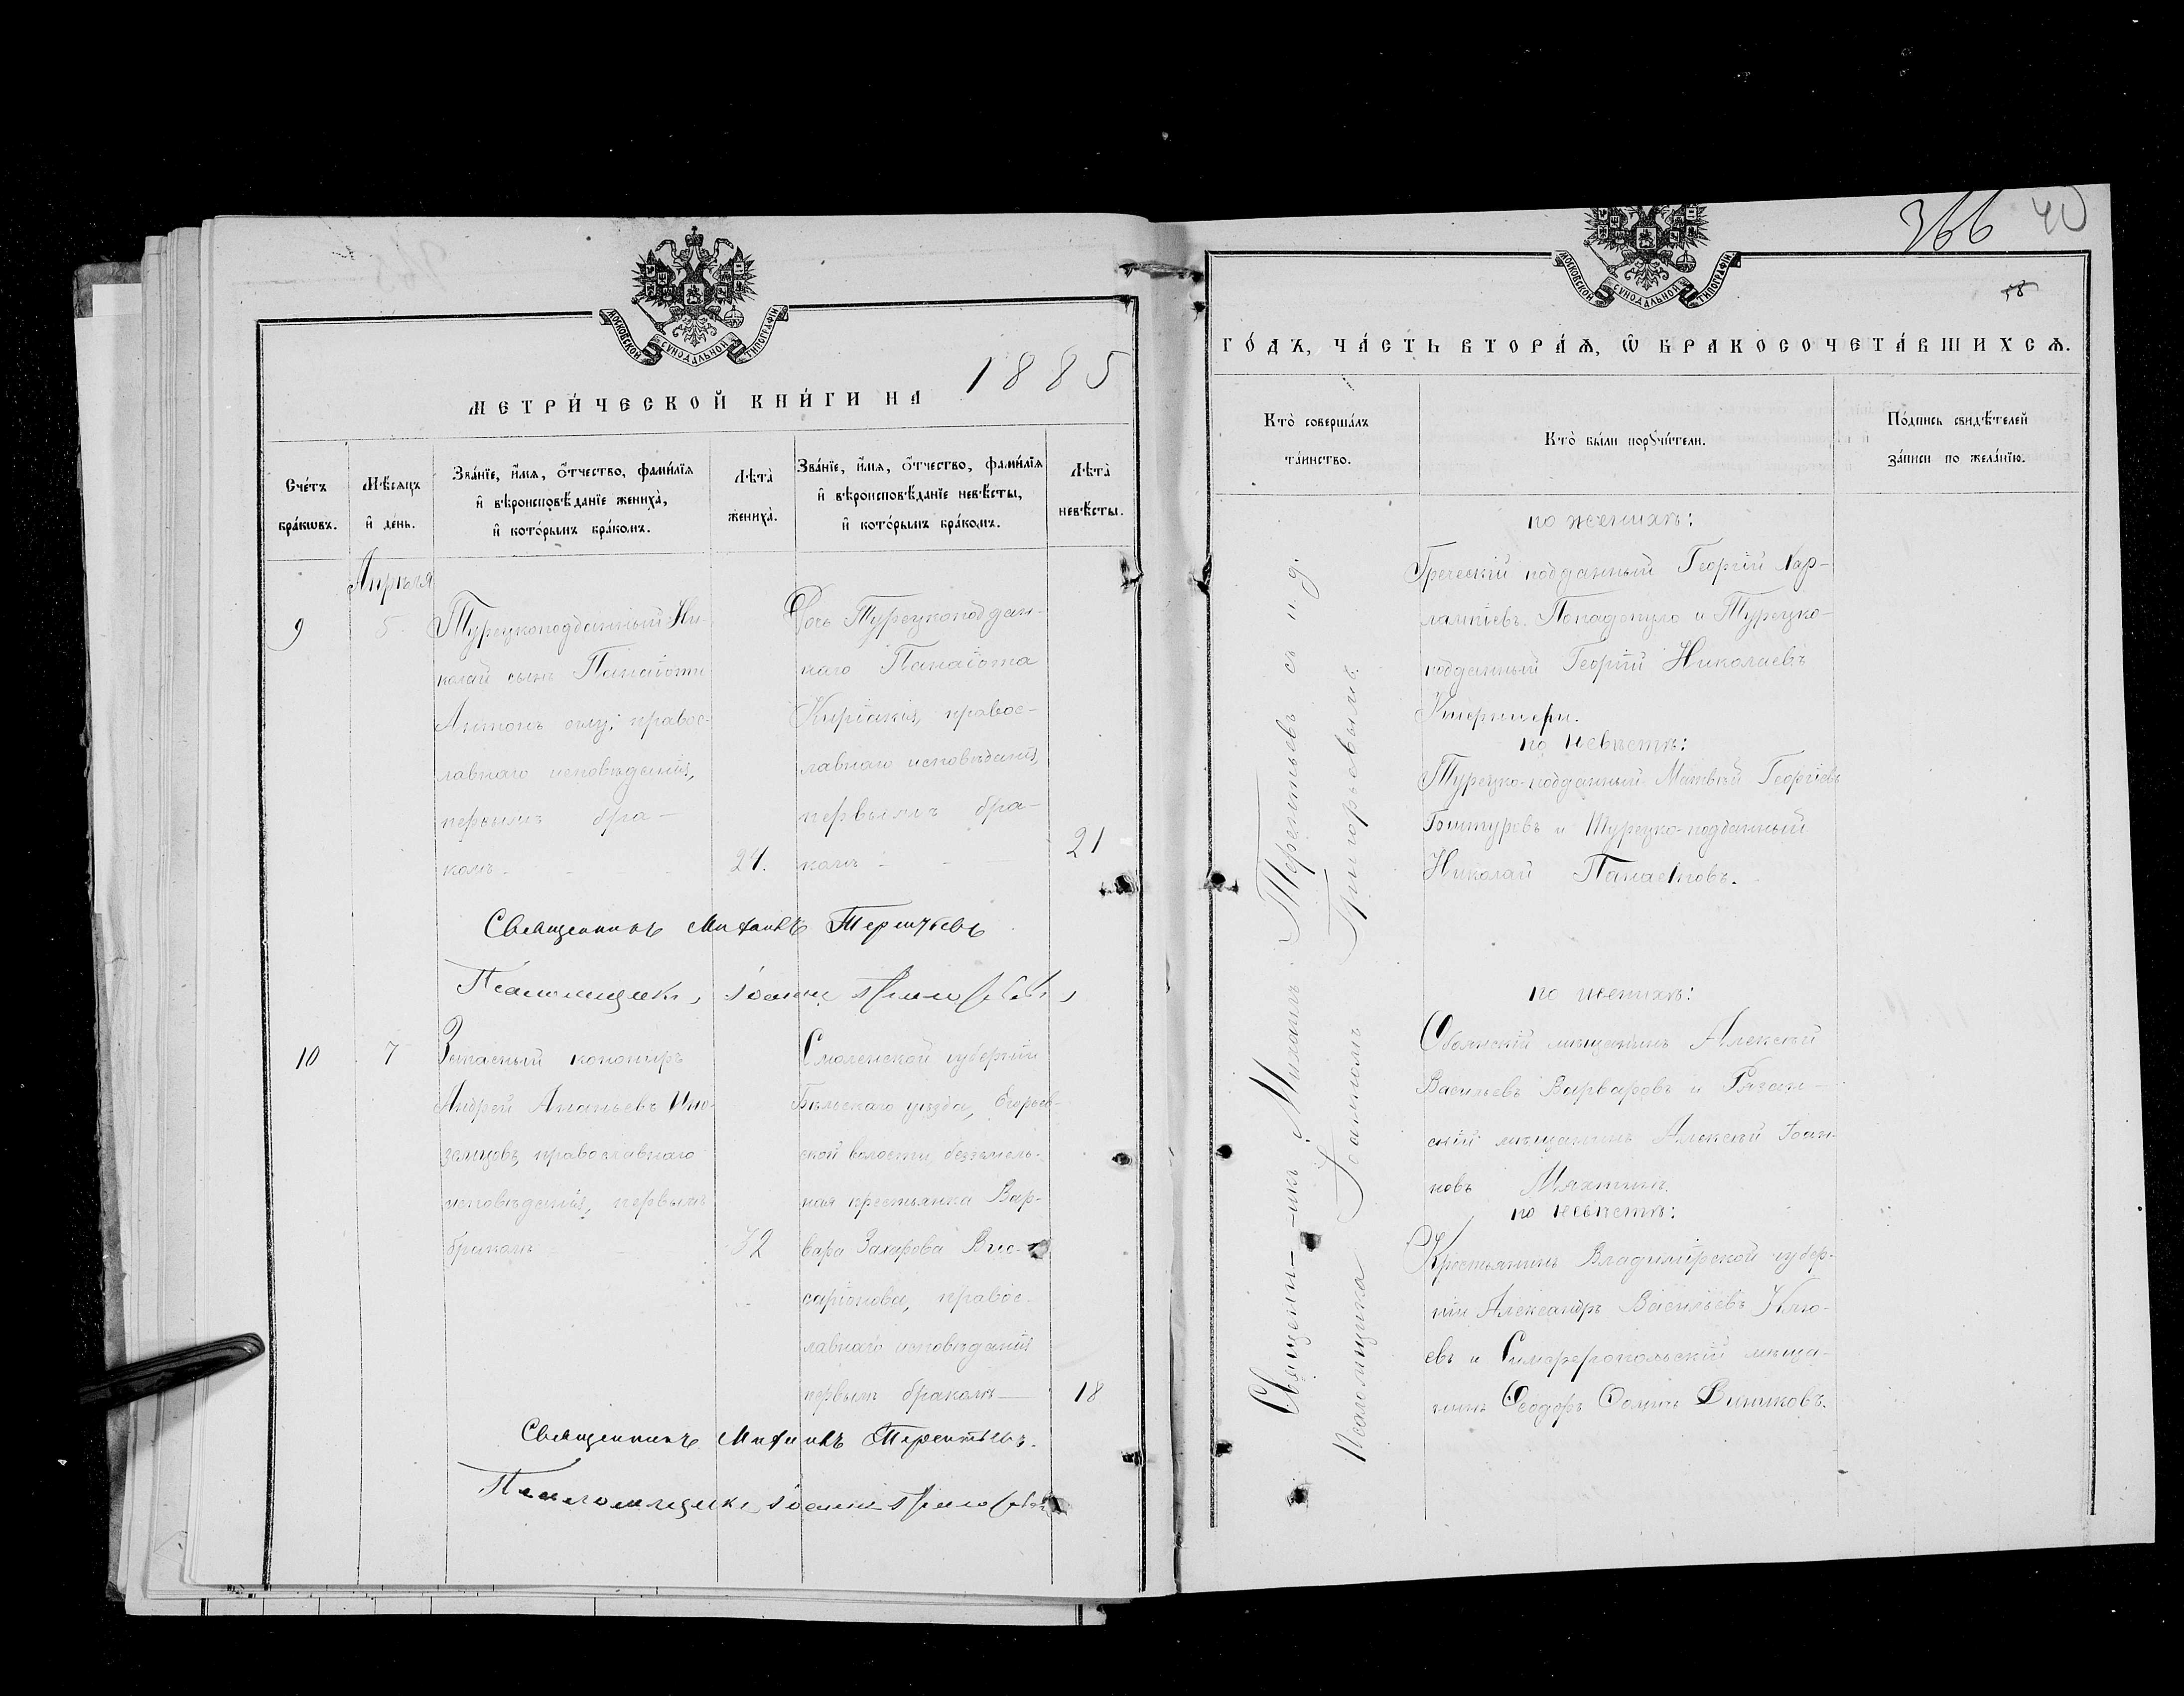 МОСКОВСКОЙ СѴНОДАЛЬНОЙ ТИПОГРАФІИ
МЕТРИ́ЧЕСКОЙ КНИ́ГИ НА 1885
Сче́тъ бра́кѡвъ.
Мѣ́сяцъ и҆ де́нь.
Зва́нїе, и҆́мя, ѻ҆́тчество, фами́лїя
и҆ вѣроисповѣ́данїе жениха̀,
и҆ кото́рымъ бра́комъ.
Лѣта̀ жениха̀.
Зва́нїе, и҆́мя, ѻ҆́тчество, фами́лїя
и҆ вѣроисповѣ́данїе невѣ́сты,
и҆ кото́рымъ бра́комъ.
Лѣта̀ невѣ́сты.
Апрѣля
9
5.
Турецкоподданный Ни-
колай сынъ Панаіоти
Антонъ оглу; правос-
лавнаго исповѣданія,
первымъ бра-
комъ
24.
Дочь Турецкоподдан-
наго Панаіота
Киріакія, правос-
лавнаго исповѣданія,
первымъ бра-
комъ
21
Священникъ Михаилъ Терентьевъ
Псаломщикъ, Іоаннъ Григорьевъ
10
7
Запасный канониръ
Андрей Ананьевъ Ино-
земцовъ, православнаго
исповѣданія, первымъ
бракомъ
32
Смоленской губерніи
Бѣльскаго уѣзда, Егорьев-
ской волости, безземель-
ная крестьянка Вар-
вара Захарова Вис-
саріонова, правос-
лавнаго исповѣданія
первымъ бракомъ
18
Священникъ Михаилъ Терентьевъ.
Псаломщикъ Іоаннъ Григорьевъ
366 40
58
МОСКОВСКОЙ СѴНОДАЛЬНОЙ ТИПОГРАФІИ
ГО́ДЪ, ЧА́СТЬ ВТОРА́Я, Ѽ БРАКОСОЧЕТА́ВШИХСЯ.
Кто̀ соверша́лъ та́инство.
Кто̀ бы́ли порꙋчи́тели.
По́дпись свидѣ́телей за́писи по жела́нїю.
Священникъ Михаилъ Терентьевъ съ и.д.
Псаломщика Іоанномъ Григорьевымъ.
по женихѣ:
Греческій подданный Георгій Хар-
лампіевъ Попадопуло и Турецко-
подданный Георгій Николаевъ
по невѣстѣ:
Турецко-подданный Матвѣй Георгіевъ
и Турецко-подданный
Николай
по женихѣ:
Обоянскій мѣщанинъ Алексѣй
Васильевъ Варваровъ и Рязан-
скій мѣщанинъ Алексѣй Іоан-
новъ
по невѣстѣ:
Крестьянинъ Владимірской губер-
ніи Александръ Васильевъ Клю-
евъ и Симферопольскій мѣща-
нинъ Ѳеодоръ Ѳоминъ Виниковъ.